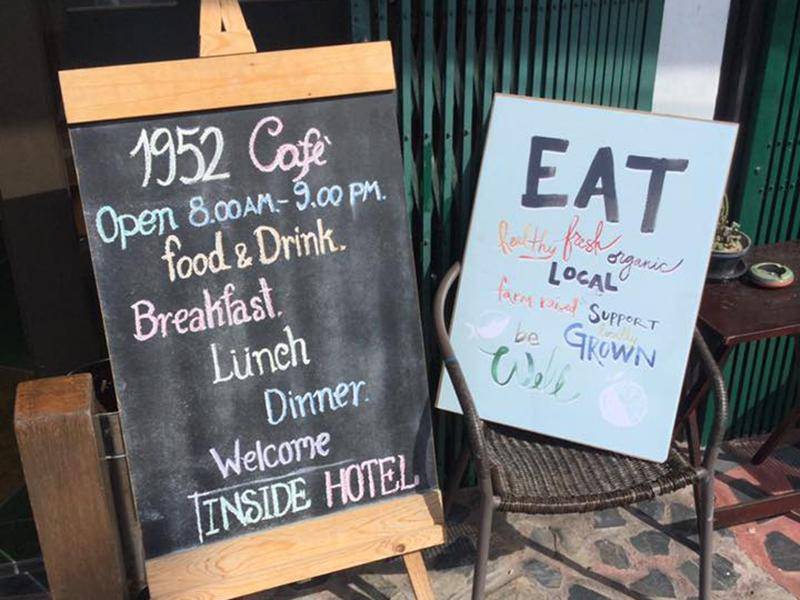 1952 Café
Open 8.00 AM.- 9.00 PM.
food & Drink.
Breakfast.
Lunch
Dinner.
Welcome
INSIDE HOTEL
EAT
healthy fresh organic
LOCAL
farm raised SUPPORT
locally
be GROWN
Well